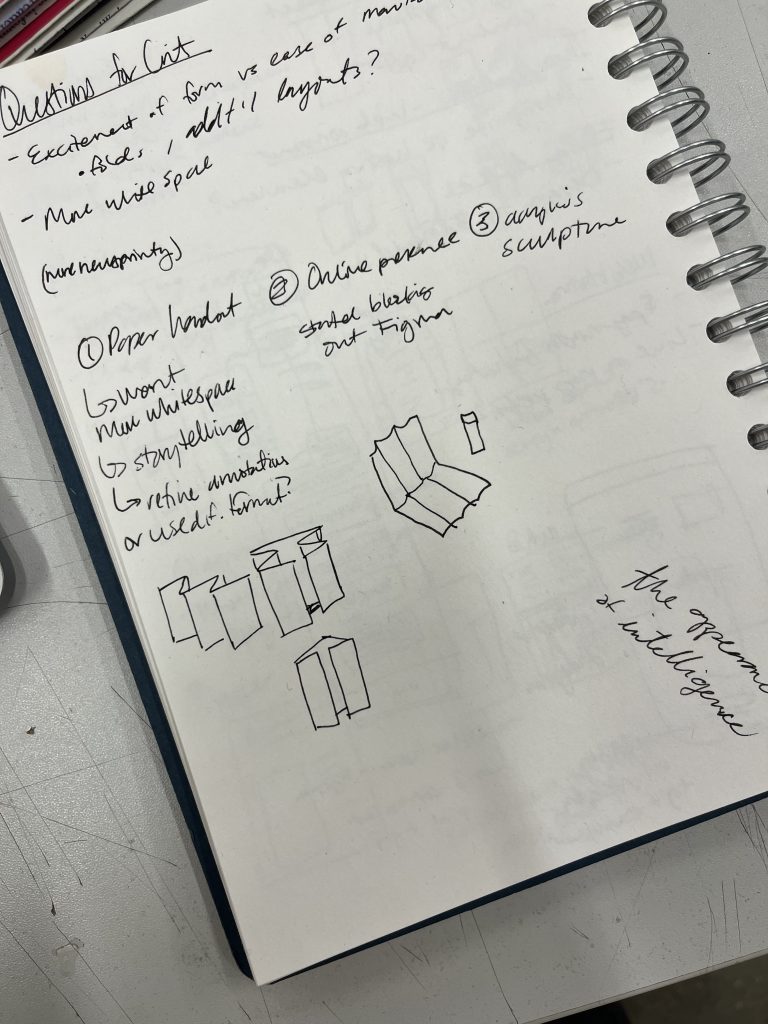 Questions for Crit
- Excitement of form vs ease of
• folds, addt'l layouts?
- More white space
(more newsprinty)
① Paper handout
↳ want
more whitespace
↳ storytelling
↳ refine annotations
or use dif. format?
② Online presence
started blocking
out Figma
③
sculpture
the appearance
of intelligence